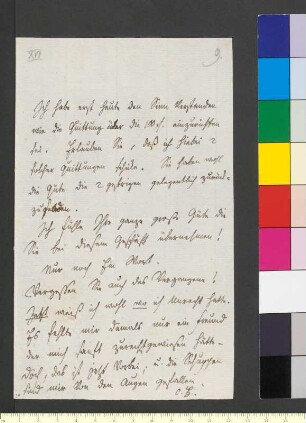 XVI
9.
Ich habe erst heute den Sinn verstanden
wie die Quittung über die 100 f. einzurichten
sei. Erlauben Sie, daß ich hiebei 2
solcher Quittungen schicke. Sie haben wohl
die Güte die 2 gestrigen gelegentlich zurück-
zugeben.
Ich fühle Ihre ganze große Güte die
Sie bei diesem Geschäft übernehmen!
Nur noch Ein Wort.
Vergessen Sie auch das Vergangene!
Jetzt weiß ich wohl wo ich Unrecht hatte.
Es fehlte mir damals nur ein Freund
der mich sanft zurechtgewiesen hätte –
Doch, das ist jetzt vorbei; u. die Schuppen
sind mir von den Augen gefallen.